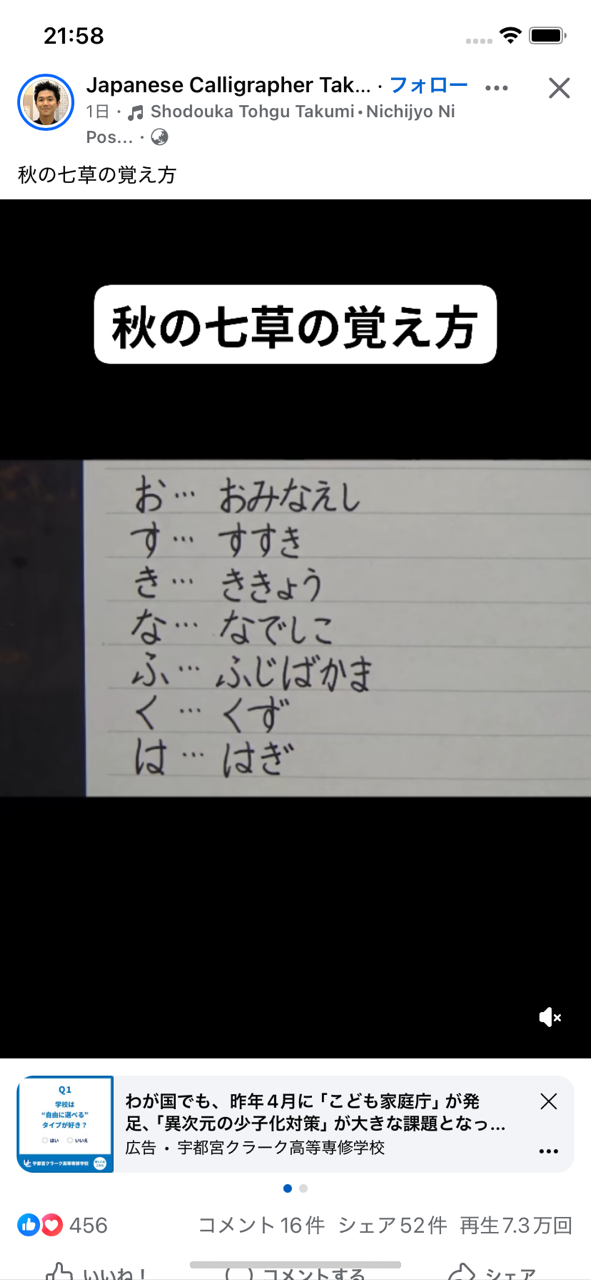 21:58
Japanese Calligrapher Tak... · フォロー
1日 · Shodouka Tohgu Takumi • Nichijyo Ni
Pos... ·
秋の七草の覚え方
秋の七草の覚え方
お… おみなえし
す… すすき
き… ききょう
な… なでしこ
ふ… ふじばかま
く… くず
は… はぎ
Q1
学校は
“自由に選べる”
タイプが好き？
はい いいえ
宇都宮クラーク高等専修学校
わが国でも、昨年４月に「こども家庭庁」が発
足、「異次元の少子化対策」が大きな課題となっ...
広告 • 宇都宮クラーク高等専修学校
456 コメント16件 シェア52件 再生7.3万回
いいね！ コメントする シェア